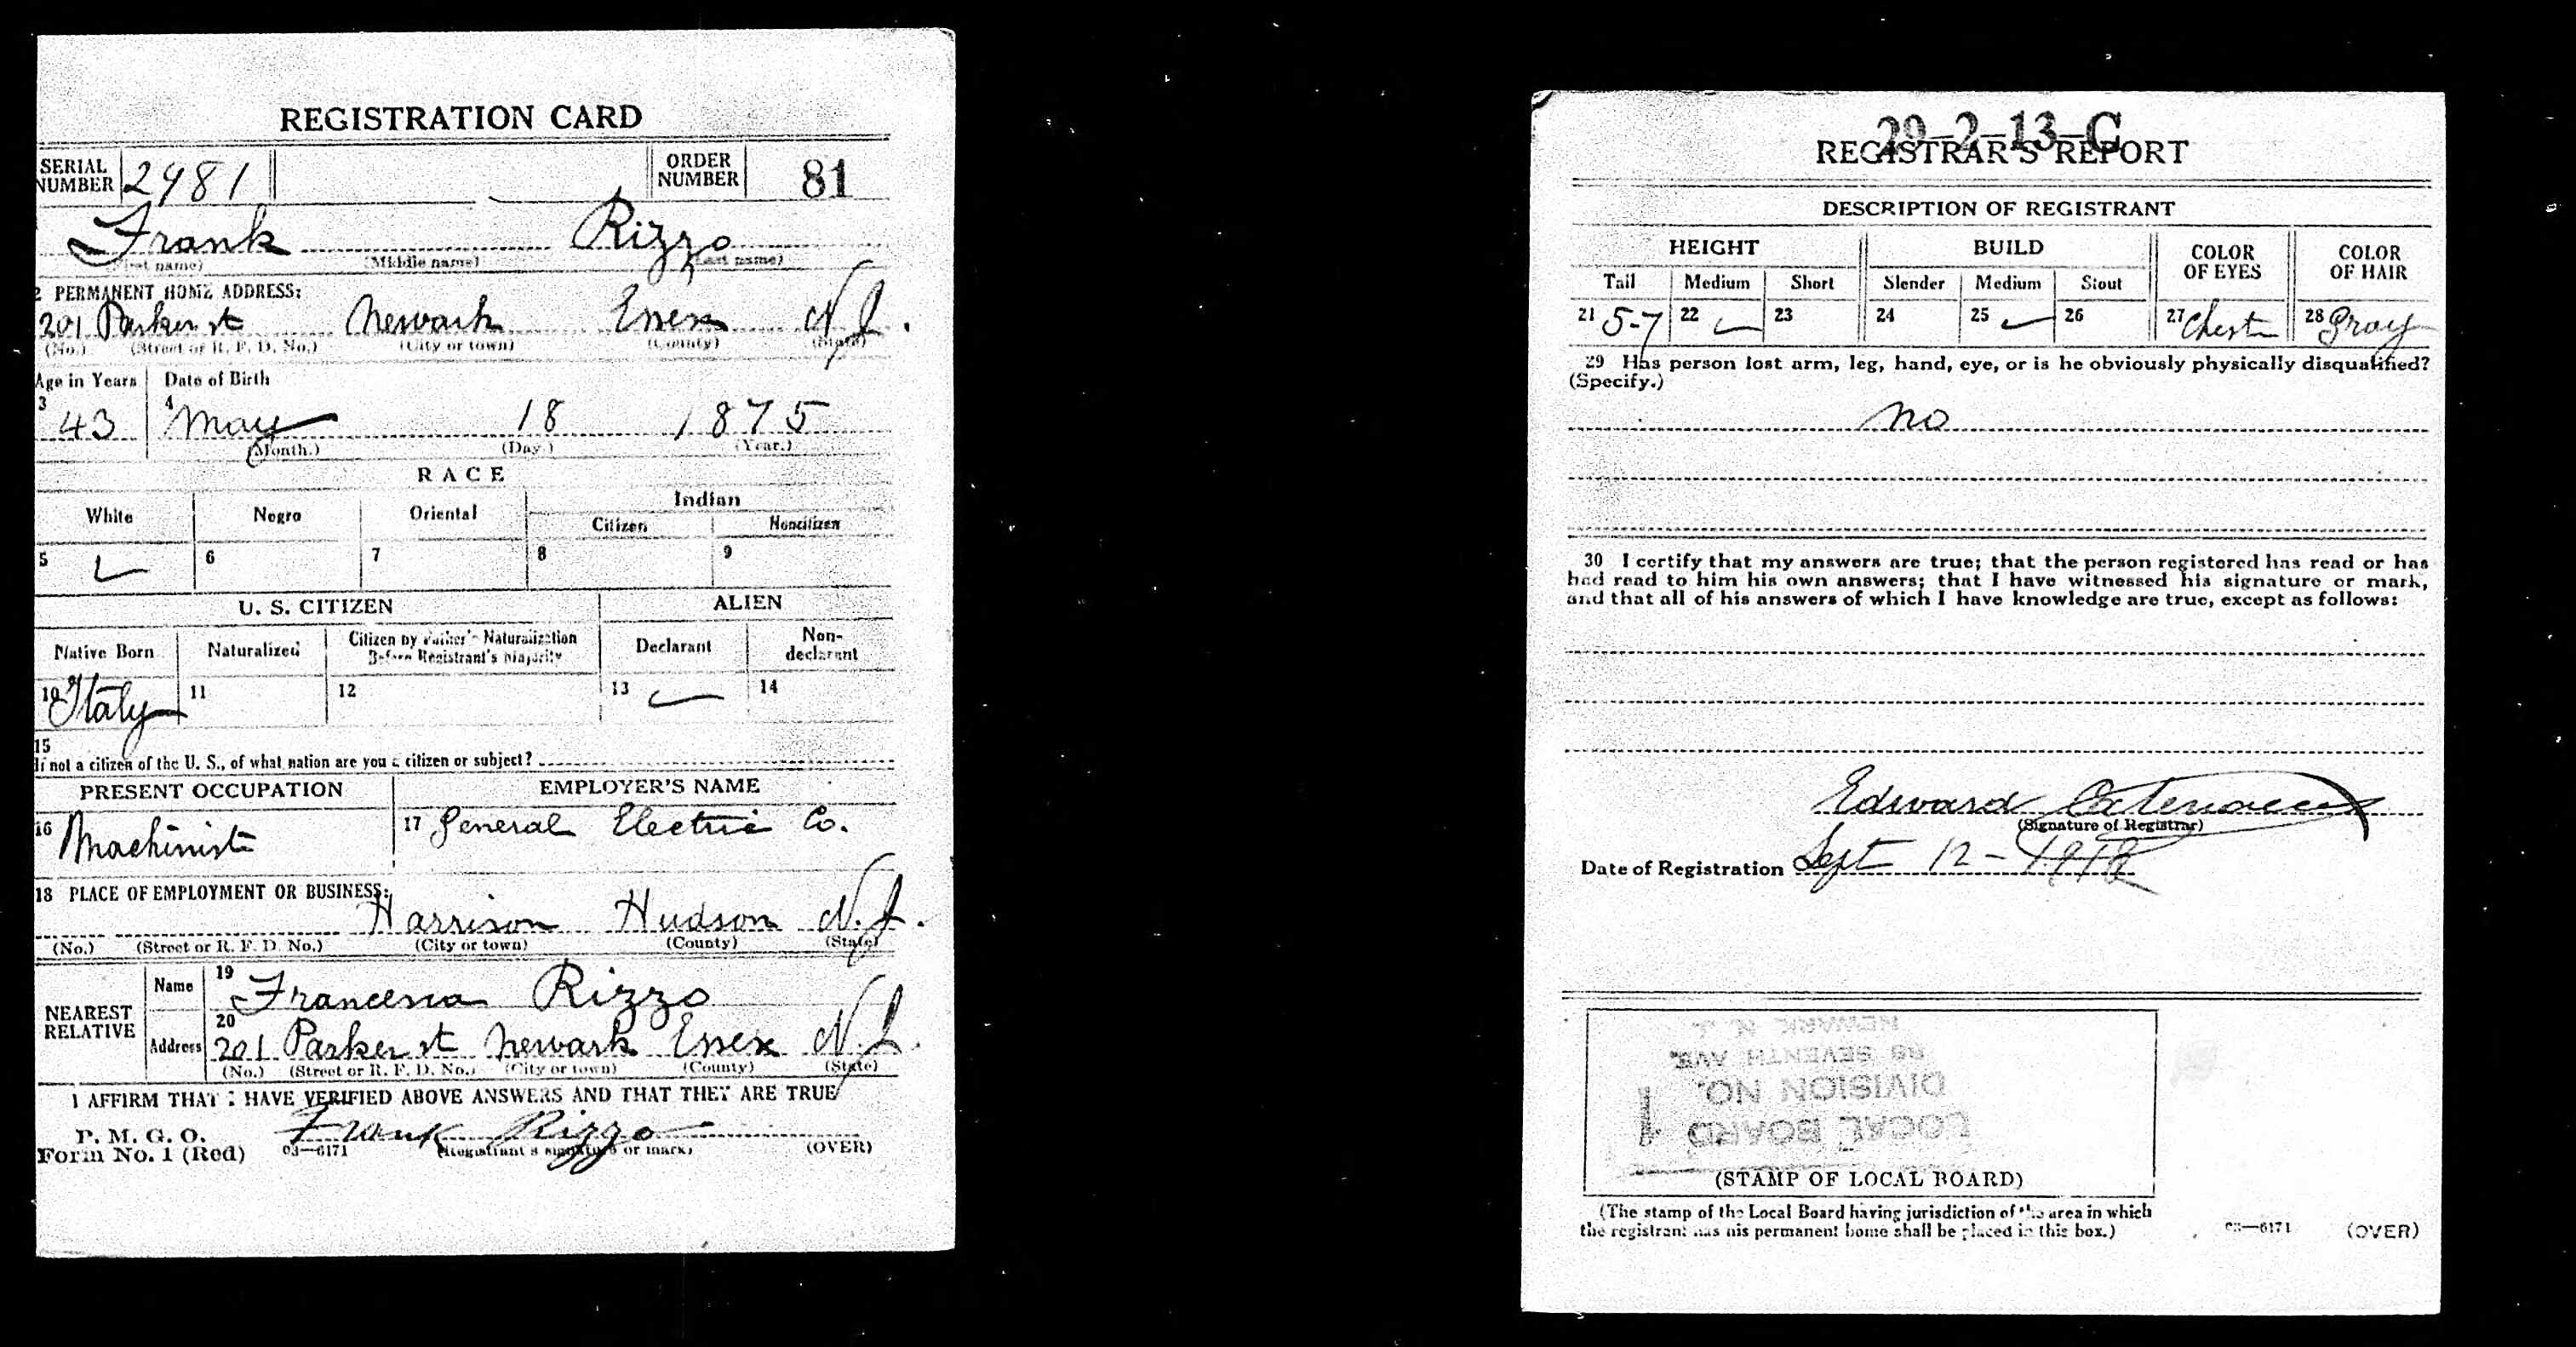 REGISTRATION CARD
SERIAL NUMBER 2981 ORDER NUMBER 81
Frank Rizzo
(First name) (Middle name) (Last name)
2 PERMANENT HOME ADDRESS:
201 Parker st Newark Essex N.J.
(No.) (Street or R. F. D. No.) (City or town) (County) (State)
Age in Years Date of Birth
3 43 4 May 18 1875
(Month.) (Day.) (Year.)
RACE
White Negro Oriental Indian
Citizen Noncitizen
5 6 7 8 9
U. S. CITIZEN ALIEN
Native Born Naturalized Citizen by Father's Naturalization Before Registrant's Majority Declarant Non-declarant
10 Italy 11 12 13 14
15
If not a citizen of the U. S., of what nation are you a citizen or subject?
PRESENT OCCUPATION EMPLOYER'S NAME
16 Machinist 17 General Electric Co.
18 PLACE OF EMPLOYMENT OR BUSINESS:
Harrison Hudson N.J.
(No.) (Street or R. F. D. No.) (City or town) (County) (State)
NEAREST RELATIVE
Name 19 Francesca Rizzo
Address 20 201 Parker st Newark Essex N.J.
(No.) (Street or R. F. D. No.) (City or town) (County) (State)
I AFFIRM THAT I HAVE VERIFIED ABOVE ANSWERS AND THAT THEY ARE TRUE
P. M. G. O.
Form No. 1 (Red) 03—6171 Frank Rizzo
(Registrant's signature or mark) (OVER)
29-2-13-C
REGISTRAR'S REPORT
DESCRIPTION OF REGISTRANT
HEIGHT BUILD COLOR OF EYES COLOR OF HAIR
Tall Medium Short Slender Medium Stout
21 5-7 22 23 24 25 26 27 Chest 28 Gray
29 Has person lost arm, leg, hand, eye, or is he obviously physically disqualified?
(Specify.)
no
30 I certify that my answers are true; that the person registered has read or has
had read to him his own answers; that I have witnessed his signature or mark,
and that all of his answers of which I have knowledge are true, except as follows:
Edward
(Signature of Registrar)
Date of Registration Sept 12 - 1918
LOCAL BOARD
DIVISION NO. 1
SEVENTH AVE.
NEWARK N. J.
(STAMP OF LOCAL BOARD)
(The stamp of the Local Board having jurisdiction of the area in which
the registrant has his permanent home shall be placed in this box.)
03—6171 (OVER)